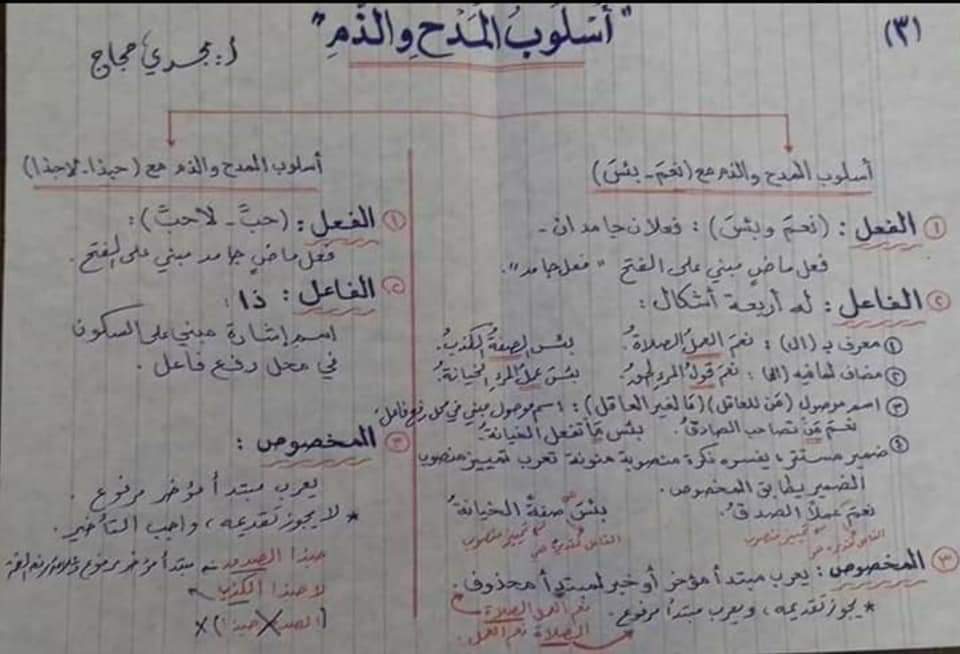 (٣)
"أسلوب المدح والذم"
أ: مجدي حجاج
أسلوب المدح والذم مع (نعمَ - بئسَ)
① الفعل: (نعمَ وبئسَ): فعلان جامدان -
فعل ماضٍ مبني على الفتح "فعل جامد".
② الفاعل: له أربعة أشكال:
① معرف بـ (ال): نعمَ العملُ الصلاةُ. بئسَ الصفةُ الكذبُ.
② مضاف لما فيه (ال): نعمَ قولُ المرءِ بئسَ عملُ المرءِ الخيانةُ.
③ اسم موصول (مَن للعاقل) (مَا لغير العاقل): اسم موصول مبني في محل رفع فاعل.
نعمَ مَنْ تصاحب الصادقُ. بئس مَا تفعل الخيانةُ.
④ ضمير مستتر، يفسره نكرة منصوبة منونة تعرب تمييز منصوب
الضمير يطابق المخصوص.
نعمَ عملاً الصدقُ. بئسَ صفةً الخيانةُ
الفاعل تقديره هو تمييز منصوب الفاعل تقديره هي تمييز منصوب
③ المخصوص: يعرب مبتدأ مؤخر أو خبر لمبتدأ محذوف.
* يجوز تقديمه، ويعرب مبتدأ مرفوع. نعم العمل الصلاة
الصلاة نعم العمل.
أسلوب المدح والذم مع (حبذا - لا حبذا)
① الفعل: (حبَّ - لا حبَّ):
فعل ماضٍ جامد مبني على الفتح.
② الفاعل: ذا:
اسم إشارة مبني على السكون
في محل رفع فاعل.
③ المخصوص:
يعرب مبتدأ مؤخر مرفوع.
* لا يجوز تقديمه، واجب التأخير.
حبذا الصدق مبتدأ مؤخر مرفوع وعلامة رفعه الضمة
لا حبذا الكذب
(الصدق حبذا) X